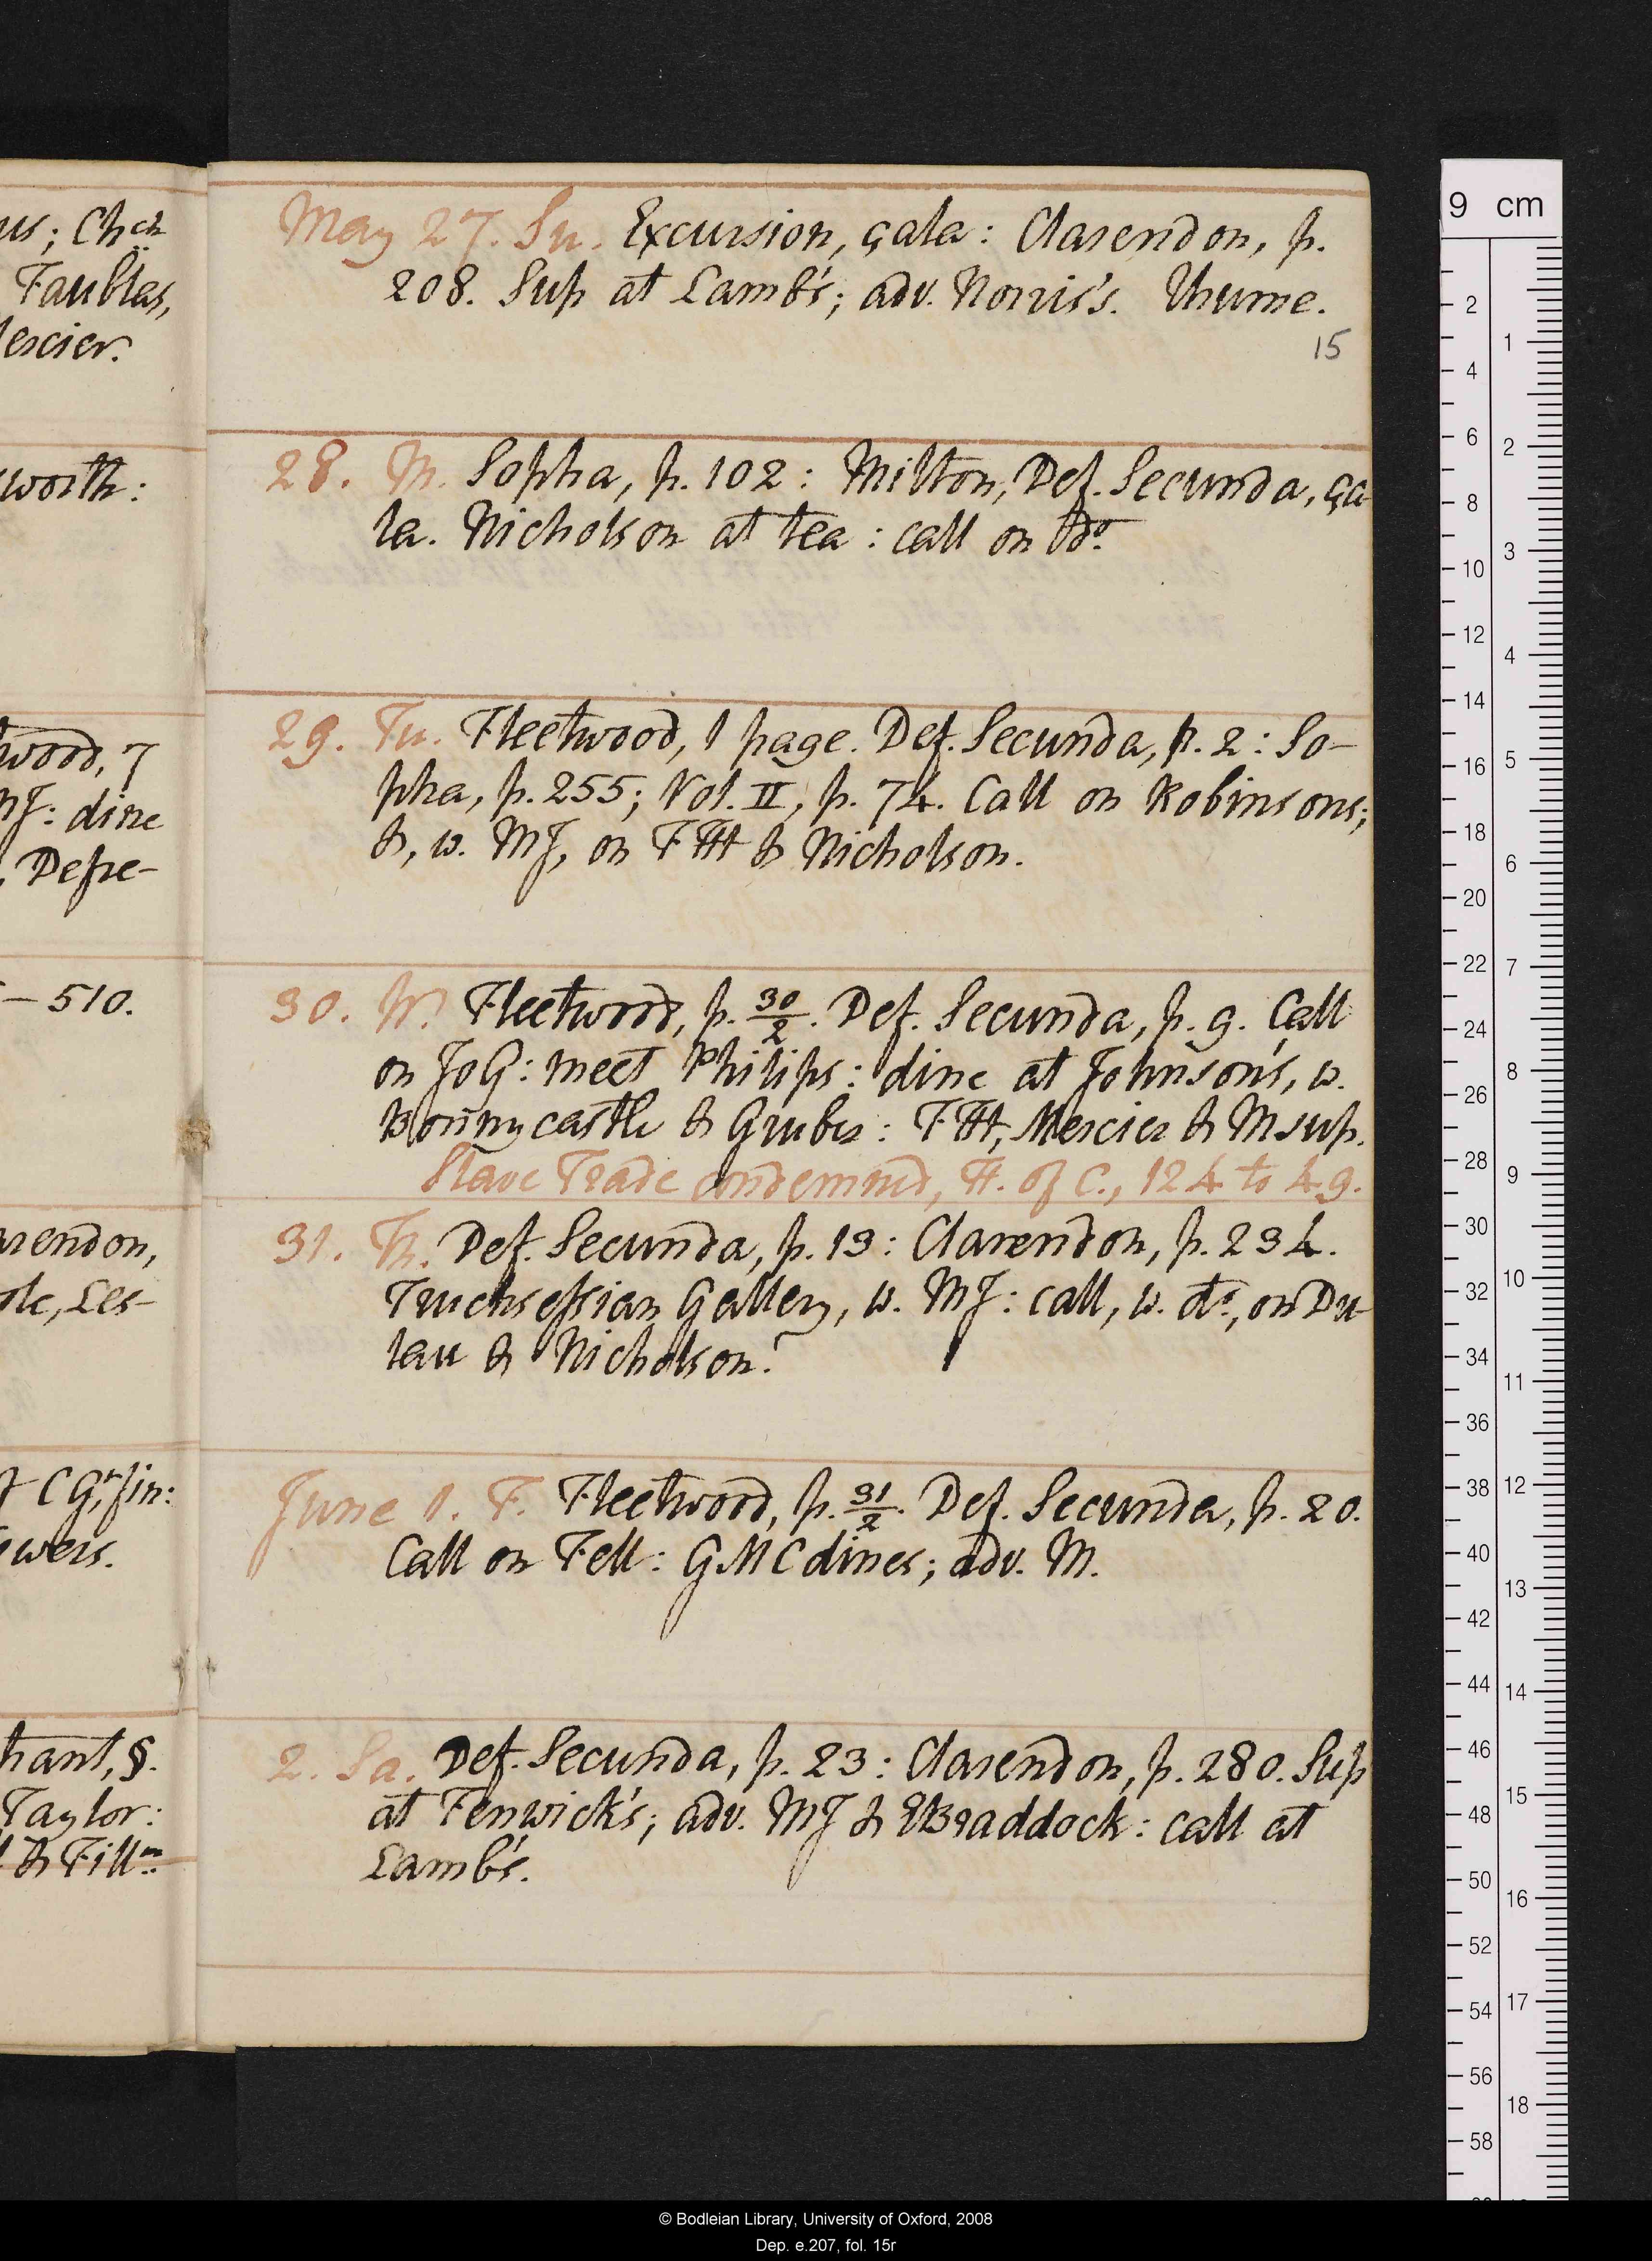 us; Chch
Faublas,
Mercier.
worth:
wood, 7
MJ: dine
Depe-
– 510.
arendon,
Les-
CGr, fin:
ewers.
hant, §.
Taylor:
& Fillm
May 27. Su. Excursion, çala: Clarendon, p.
208. Sup at Lamb's; adv. Norris's. Rhume.
15
28. M. Sopha, p. 102: Milton, Def. Secunda, ça
la. Nicholson at tea: call on do.
29. Tu. Fleetwood, 1 page. Def. Secunda, p. 2: So-
pha, p. 255; Vol. II, p. 74. Call on Robinsons;
&, w. MJ, on TH & Nicholson.
30. W. Fleetwood, p. 30/2. Def. Secunda, p. 9. Call
on JoG: meet Philips: dine at Johnson's, w.
Bonnycastle & Grubr: TH, Mercier & M sup.
Slave Trade condemned, H. of C., 124 to 49.
31. Th. Def. Secunda, p. 13: Clarendon, p. 234.
Truchsessian Gallery, w. MJ: call, w. do, on Du
lau & Nicholson.
June 1. F. Fleetwood, p. 31/2. Def. Secunda, p. 20.
Call on Fell: GMC dines; adv. M.
2. Sa. Def. Secunda, p. 23: Clarendon, p. 280. Sup
at Fenwick's; adv. MJ & EBraddock: call at
Lamb's.
9 cm
2 4 6 8 10 12 14 16 18 20 22 24 26 28 30 32 34 36 38 40 42 44 46 48 50 52 54 56 58
1 2 3 4 5 6 7 8 9 10 11 12 13 14 15 16 17 18
© Bodleian Library, University of Oxford, 2008
Dep. e.207, fol. 15r